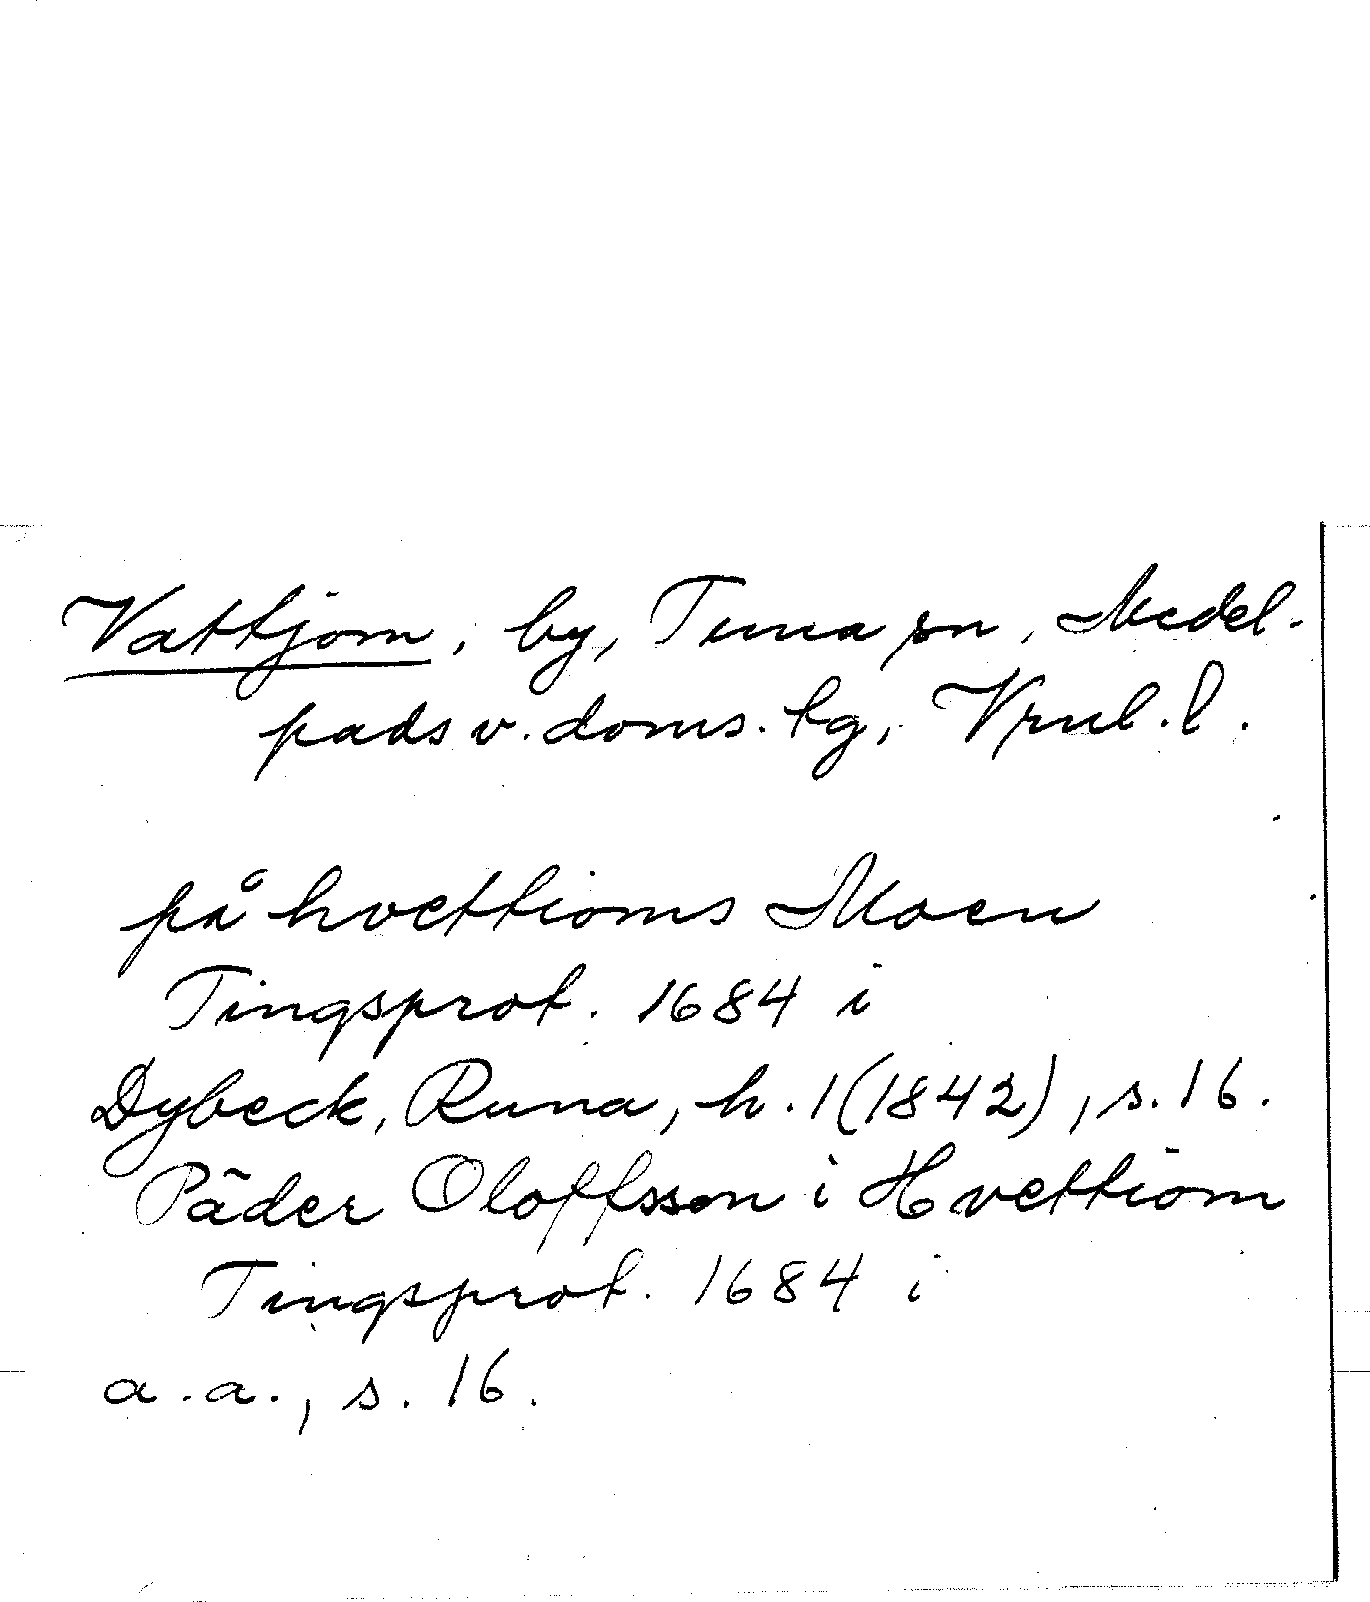 Vattjom, by, Tuna sn, Medel-
pads v. doms. tg, Vrnl. l.
på hvettioms Moen
Tingsprot. 1684 i
Dybeck, Runa, h. 1 (1842), s. 16.
Päder Oloffsson i Hvettiom
Tingsprot. 1684 i
a. a., s. 16.